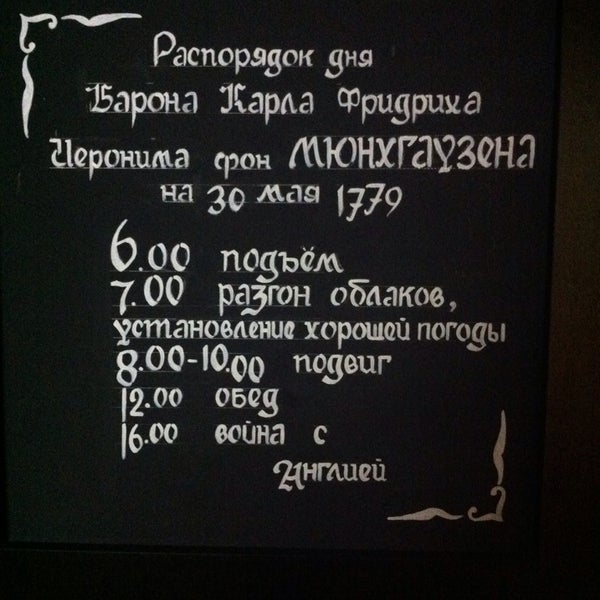 Распорядок дня
Барона Карла Фридриха
Иеронима фон МЮНХГАУЗЕНА
на 30 мая 1779
6.00 подъём
7.00 разгон облаков,
установление хорошей погоды
8.00-10.00 подвиг
12.00 обед
16.00 война с
Англией